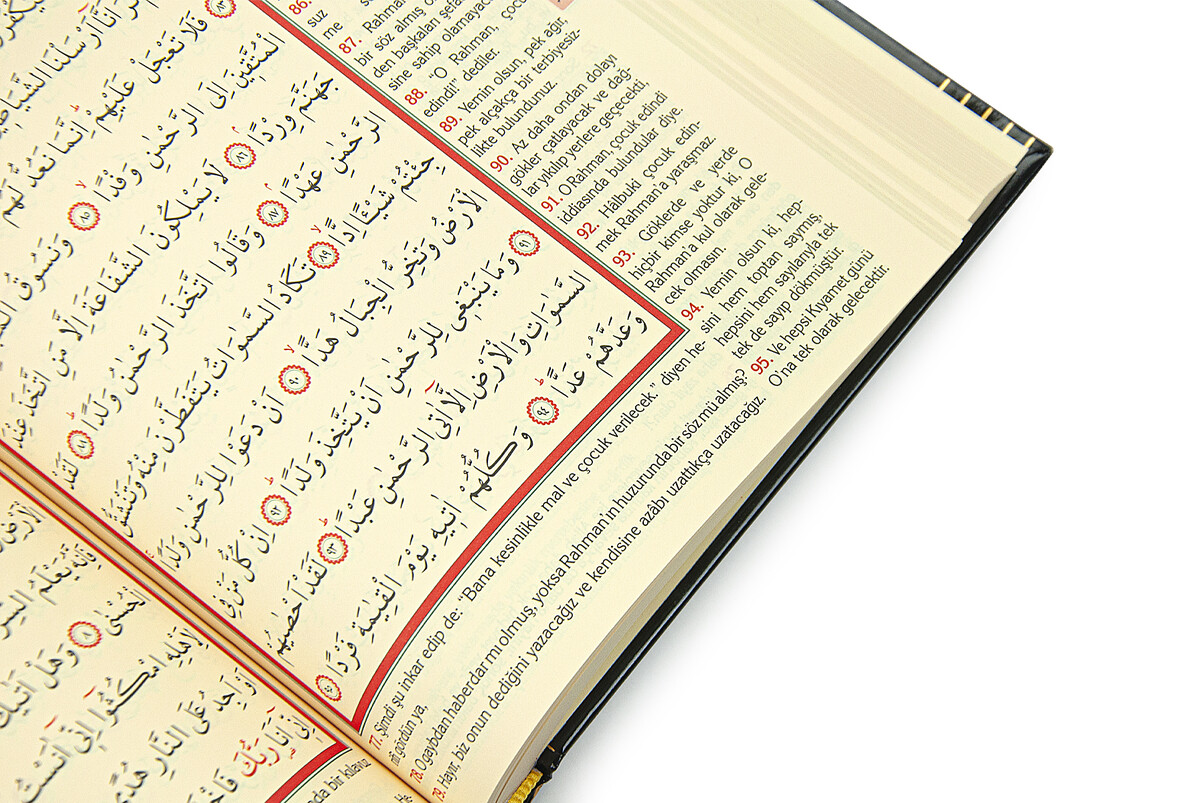 اَنَّٓا اَرْسَلْنَا
فَلَا تَعْجَلْ عَلَيْهِمْ اِنَّمَا نَعُدُّ لَهُمْ
الْمُتَّقٖينَ اِلَى الرَّحْمٰنِ وَفْدًا ﴿٨٥﴾ وَنَسُوقُ
جَهَنَّمَ وِرْدًا ﴿٨٦﴾ لَا يَمْلِكُونَ الشَّفَاعَةَ اِلَّا مَنِ اتَّخَذَ عِنْدَ
الرَّحْمٰنِ عَهْدًا ﴿٨٧﴾ وَقَالُوا اتَّخَذَ الرَّحْمٰنُ وَلَدًا ﴿٨٨﴾ لَقَدْ
جِئْتُمْ شَيْـًٔا اِدًّا ﴿٨٩﴾ تَكَادُ السَّمٰوَاتُ يَتَفَطَّرْنَ مِنْهُ وَتَنْشَقُّ
الْاَرْضُ وَتَخِرُّ الْجِبَالُ هَدًّا ﴿٩٠﴾ اَنْ دَعَوْا لِلرَّحْمٰنِ وَلَدًا
﴿٩١﴾ وَمَا يَنْبَغٖى لِلرَّحْمٰنِ اَنْ يَتَّخِذَ وَلَدًا ﴿٩٢﴾ اِنْ كُلُّ مَنْ فِى
السَّمٰوَاتِ وَالْاَرْضِ اِلَّٓا اٰتِى الرَّحْمٰنِ عَبْدًا ﴿٩٣﴾ لَقَدْ اَحْصٰيهُمْ
وَعَدَّهُمْ عَدًّا ﴿٩٤﴾ وَكُلُّهُمْ اٰتٖيهِ يَوْمَ الْقِيٰمَةِ فَرْدًا ﴿٩٥﴾
86.
suz
me
87. Rahman
bir söz almış
den başkaları
sine sahip olamayac
88. "O Rahman, çocu
edindi!" dediler.
89. Yemin olsun, pek ağır,
pek alçakça bir terbiyesiz-
likte bulundunuz.
90. Az daha ondan dolayı
gökler çatlayacak ve dağ-
lar yıkılıp yerlere geçecekti,
91. O Rahman, çocuk edindi
iddiasında bulundular diye.
92. Hâlbuki çocuk edin-
mek Rahman'a yaraşmaz.
93. Göklerde ve yerde
hiçbir kimse yoktur ki, O
Rahman'a kul olarak gele-
cek olmasın.
94. Yemin olsun ki, hep-
sini hem toptan saymış,
hepsini hem sayılarıyla tek
tek de sayıp dökmüştür.
95. Ve hepsi Kıyamet günü
O'na tek olarak gelecektir.
77. Şimdi şu inkar edip de: "Bana kesinlikle mal ve çocuk verilecek." diyen he-
rifi gördün ya,
78. O gaybdan haberdar mı olmuş, yoksa Rahman'ın huzurunda bir söz mü almış?
79. Hayır, biz onun dediğini yazacağız ve kendisine azabı uzattıkça uzatacağız.
الْاَرْضِ
فَاِنَّهُ يَعْلَمُ السِّرَّ
الْحُسْنٰى ﴿٨﴾ وَهَلْ اَتٰيكَ
لِاَهْلِهِ امْكُثُٓوا اِنّٖٓى اٰنَسْتُ
عَلَى النَّارِ هُدًى
اِنّٖٓى اَنَا۬ رَبُّكَ
bir kılavuz